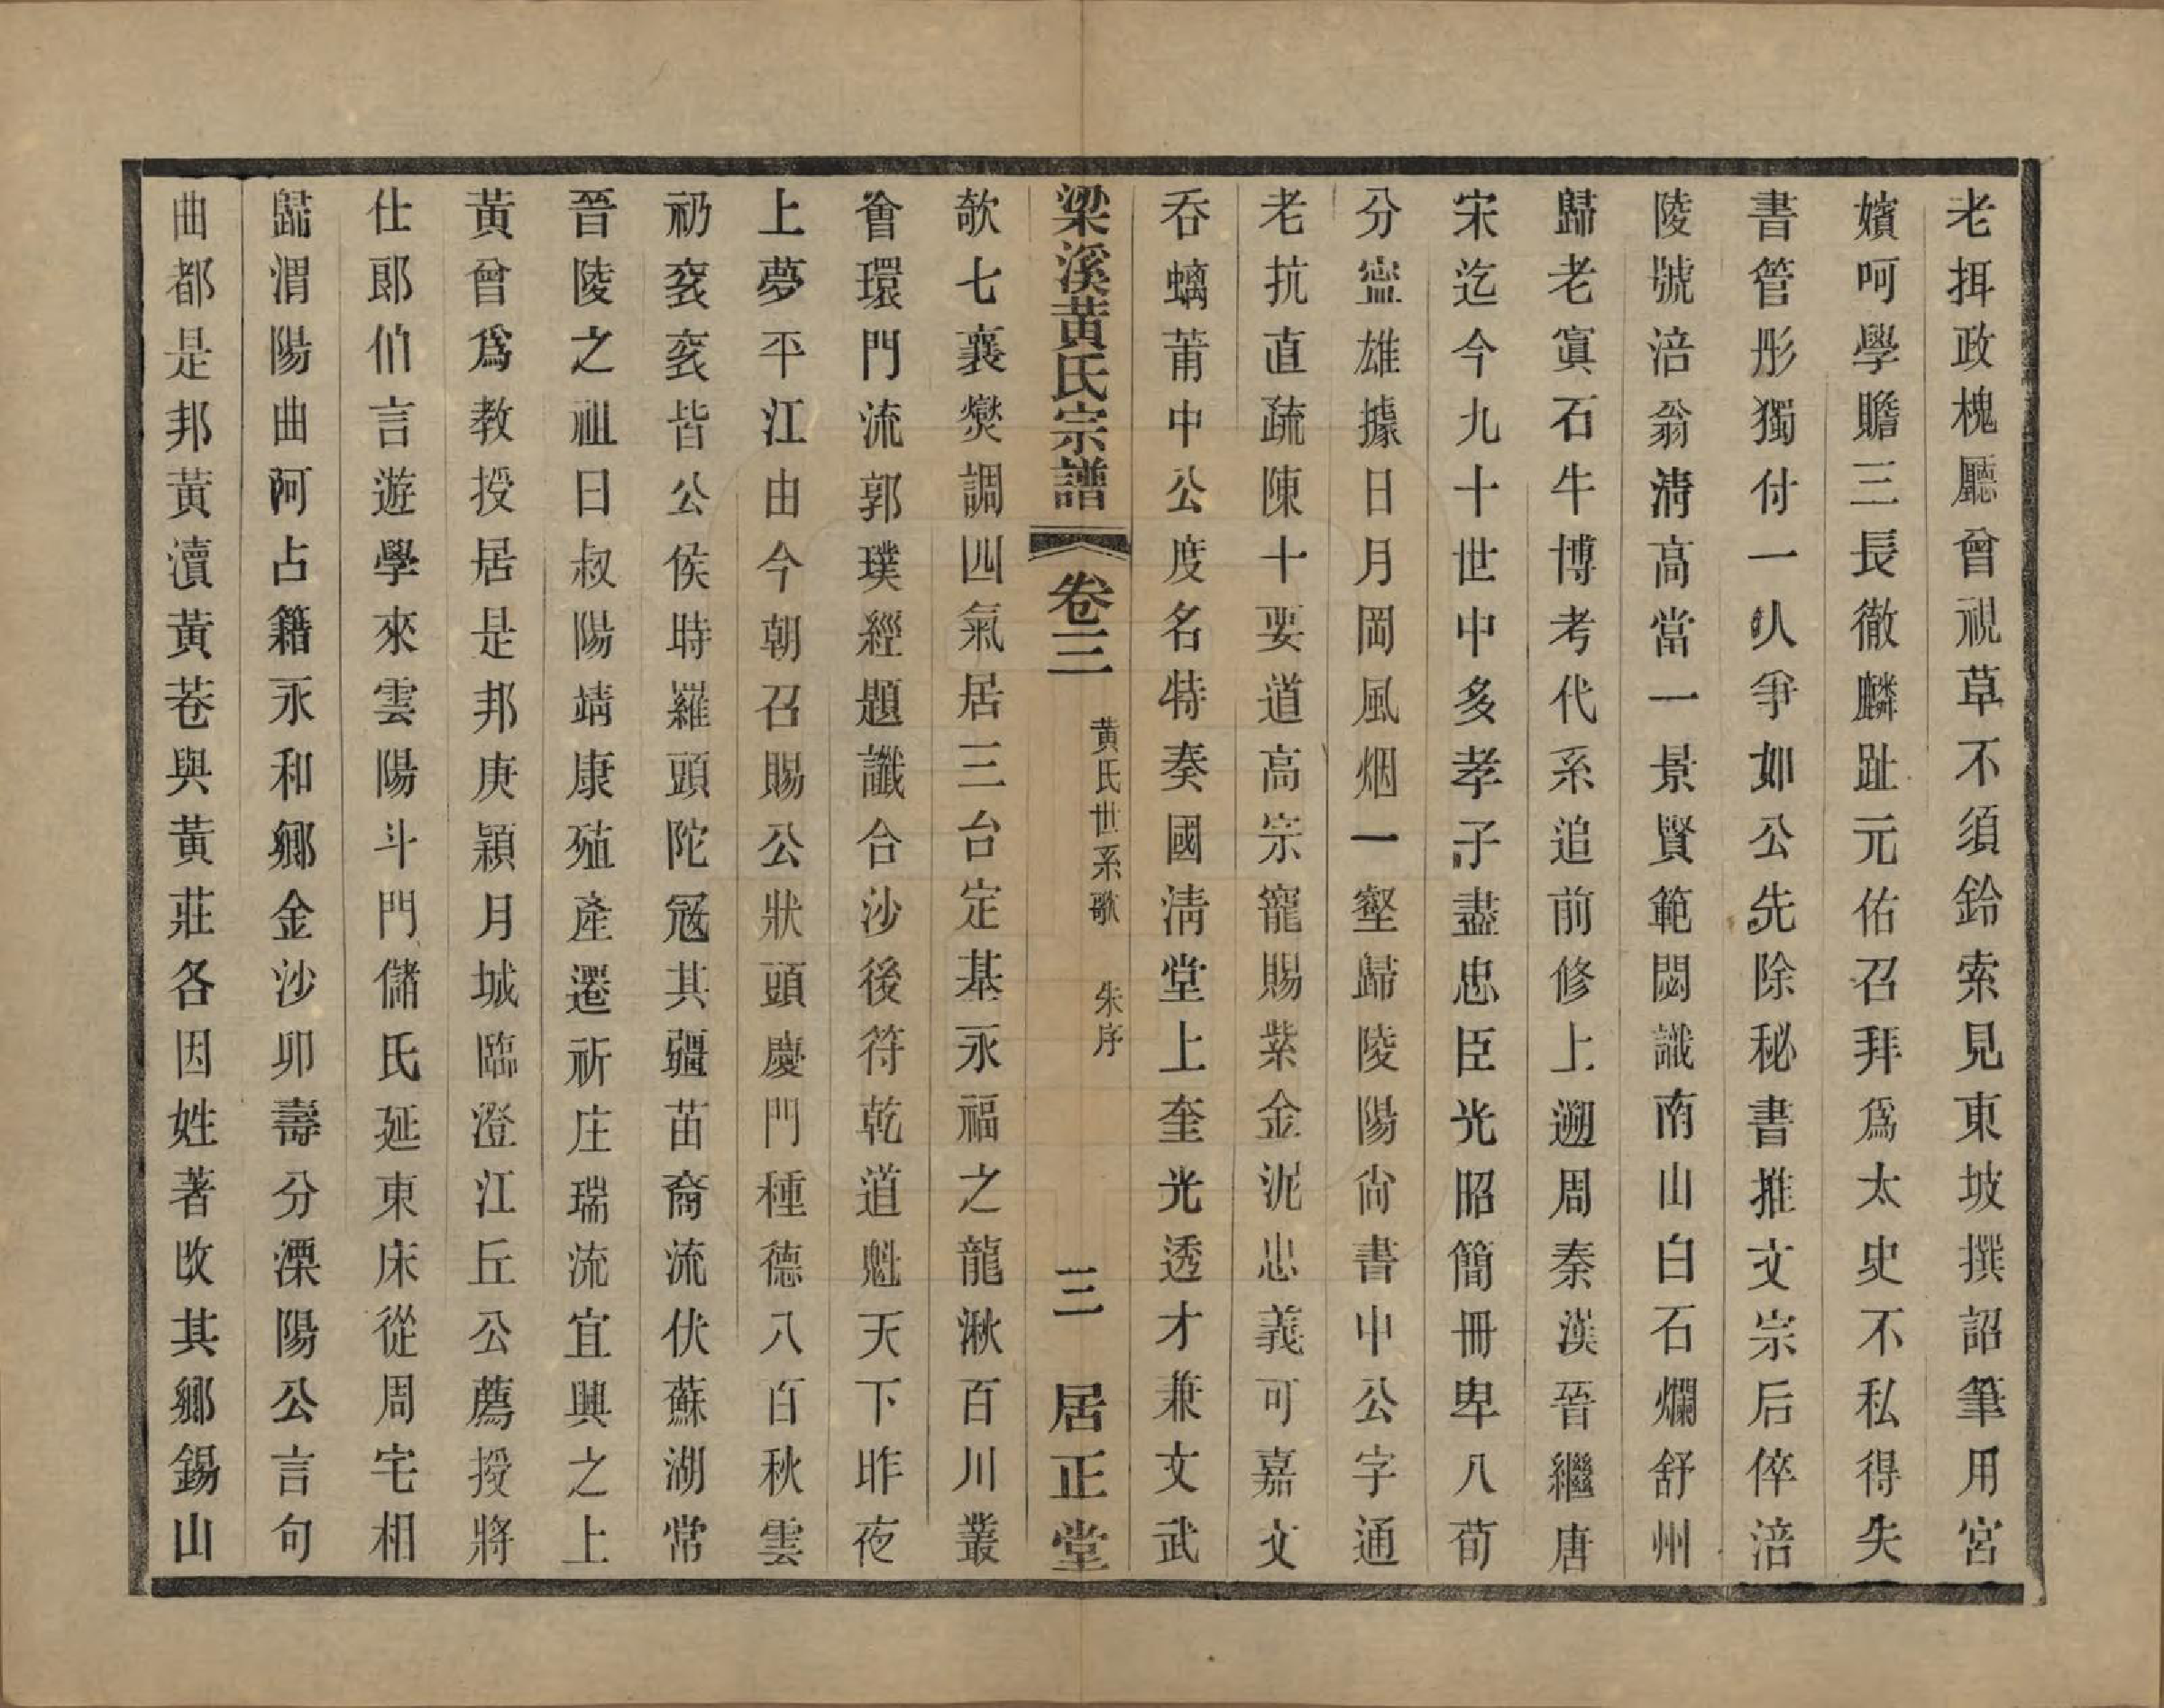 老挕政槐廳曾視草不須鈴索見東坡撰詔筆用宮
嬪呵學贍三長徹麟趾元佑召拜爲太史不私得失
書管彤獨付一人爭如公先除秘書推文宗后倅涪
陵號涪翁清高當一景賢範閟議南山白石爛舒州
歸老寘石牛博考代系追前修上遡周秦漢晉繼唐
宋迄今九十世中多孝子盡忠臣光昭簡冊卑八荀
分寧雄據日月岡風烟一壑歸陵陽尙書中公字通
老抗直疏陳十要道高宗寵賜紫金泥忠義可嘉文
吞螭莆中公度名特奏國清堂上奎光透才兼文武
梁溪黃氏宗譜 卷三 黃氏世系歌 朱序 三 居正堂
欹七襄爕調四氣居三台定基永福之龍湫百川叢
會環門流郭璞經題讖合沙後符乾道魁天下昨夜
上夢平江由今朝召賜公狀頭慶門種德八百秋雲
礽衮衮皆公侯時羅頭陀冠其疆苗裔流伏蘇湖常
晉陵之祖曰叔陽靖康殖產遷祈庄瑞流宜興之上
黃曾爲教授居是邦庚穎月城臨澄江丘公薦授將
仕郎伯言遊學來雲陽斗門儲氏延東床從周宅相
歸渭陽曲阿占籍永和鄉金沙卯壽分溧陽公言句
曲都是邦黃瀆黃巷與黃莊各因姓著改其鄉錫山